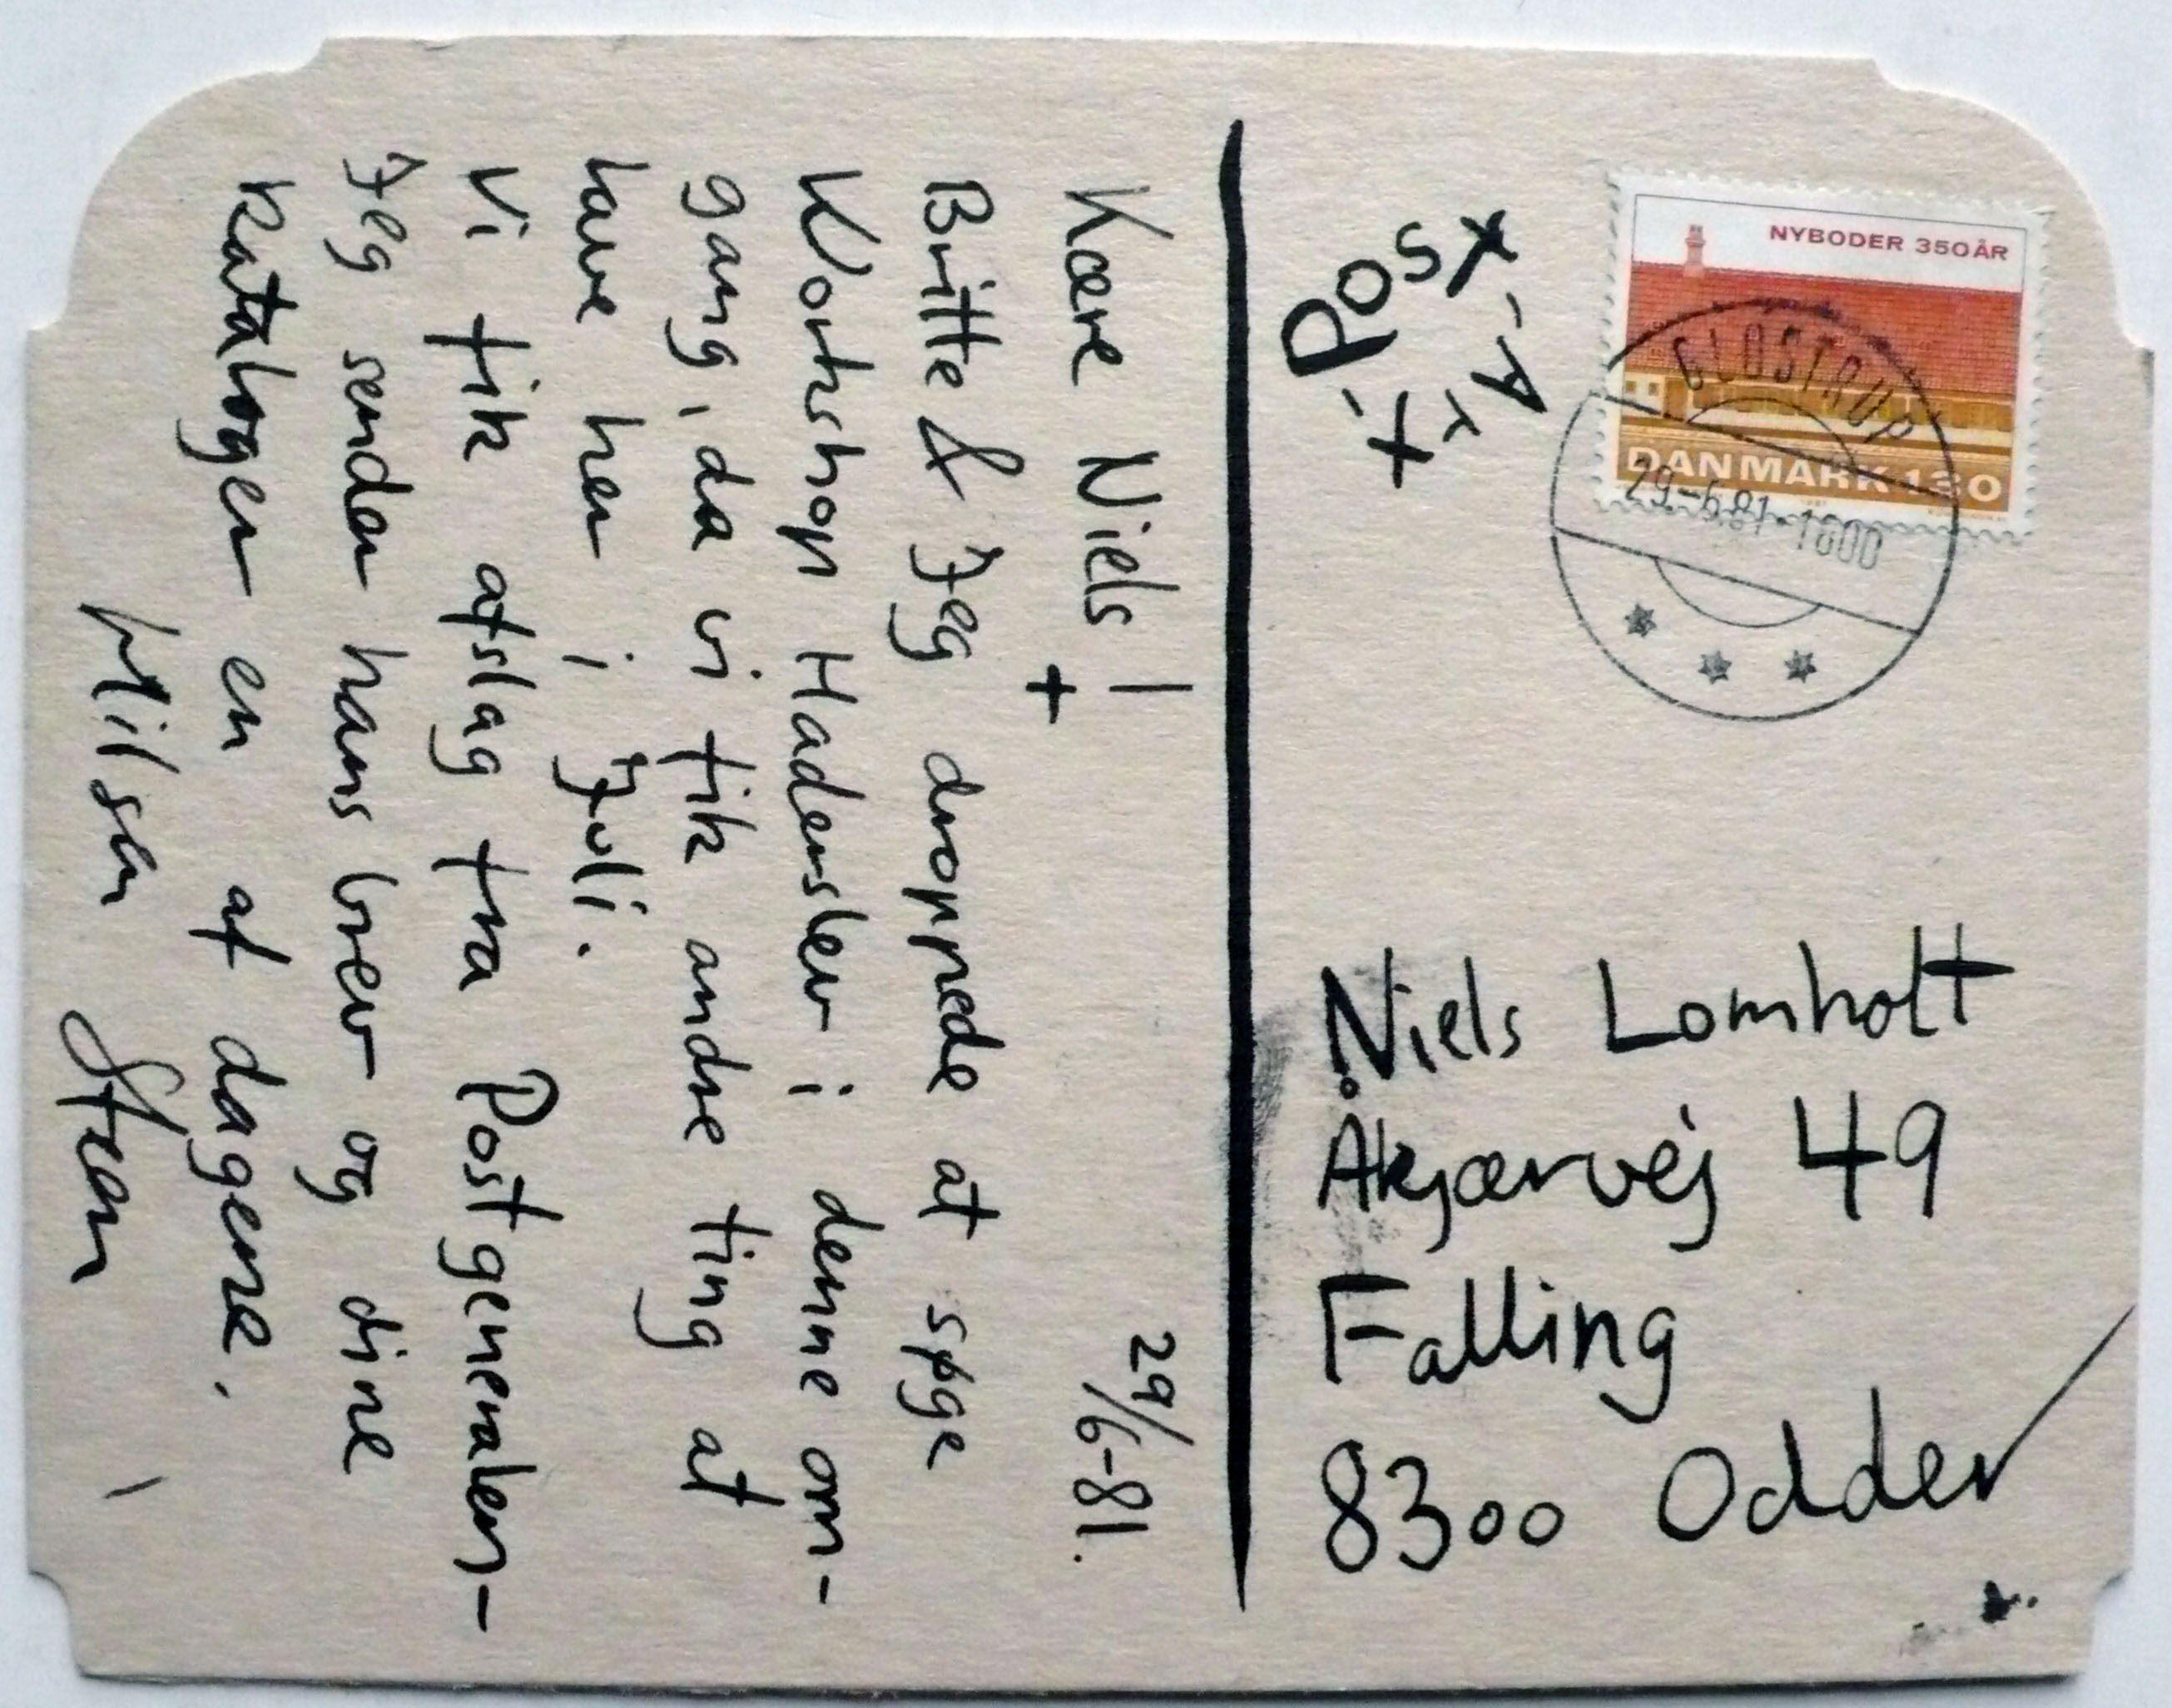 Kære Niels! 29/6-81.
+
Britte & Jeg droppede at søge
Workshop Haderslev i denne om-
gang, da vi fik andre ting at
lave her i Juli.
Vi fik afslag fra Postgeneralen-
Jeg sender hans brev og dine
kataloger en af dagene.
Hilsen Steen
Post
NYBODER 350 ÅR
DANMARK 130
GLOSTRUP
29-6.81-1800
Niels Lomholt
Åkjærvej 49
Falling
8300 Odder